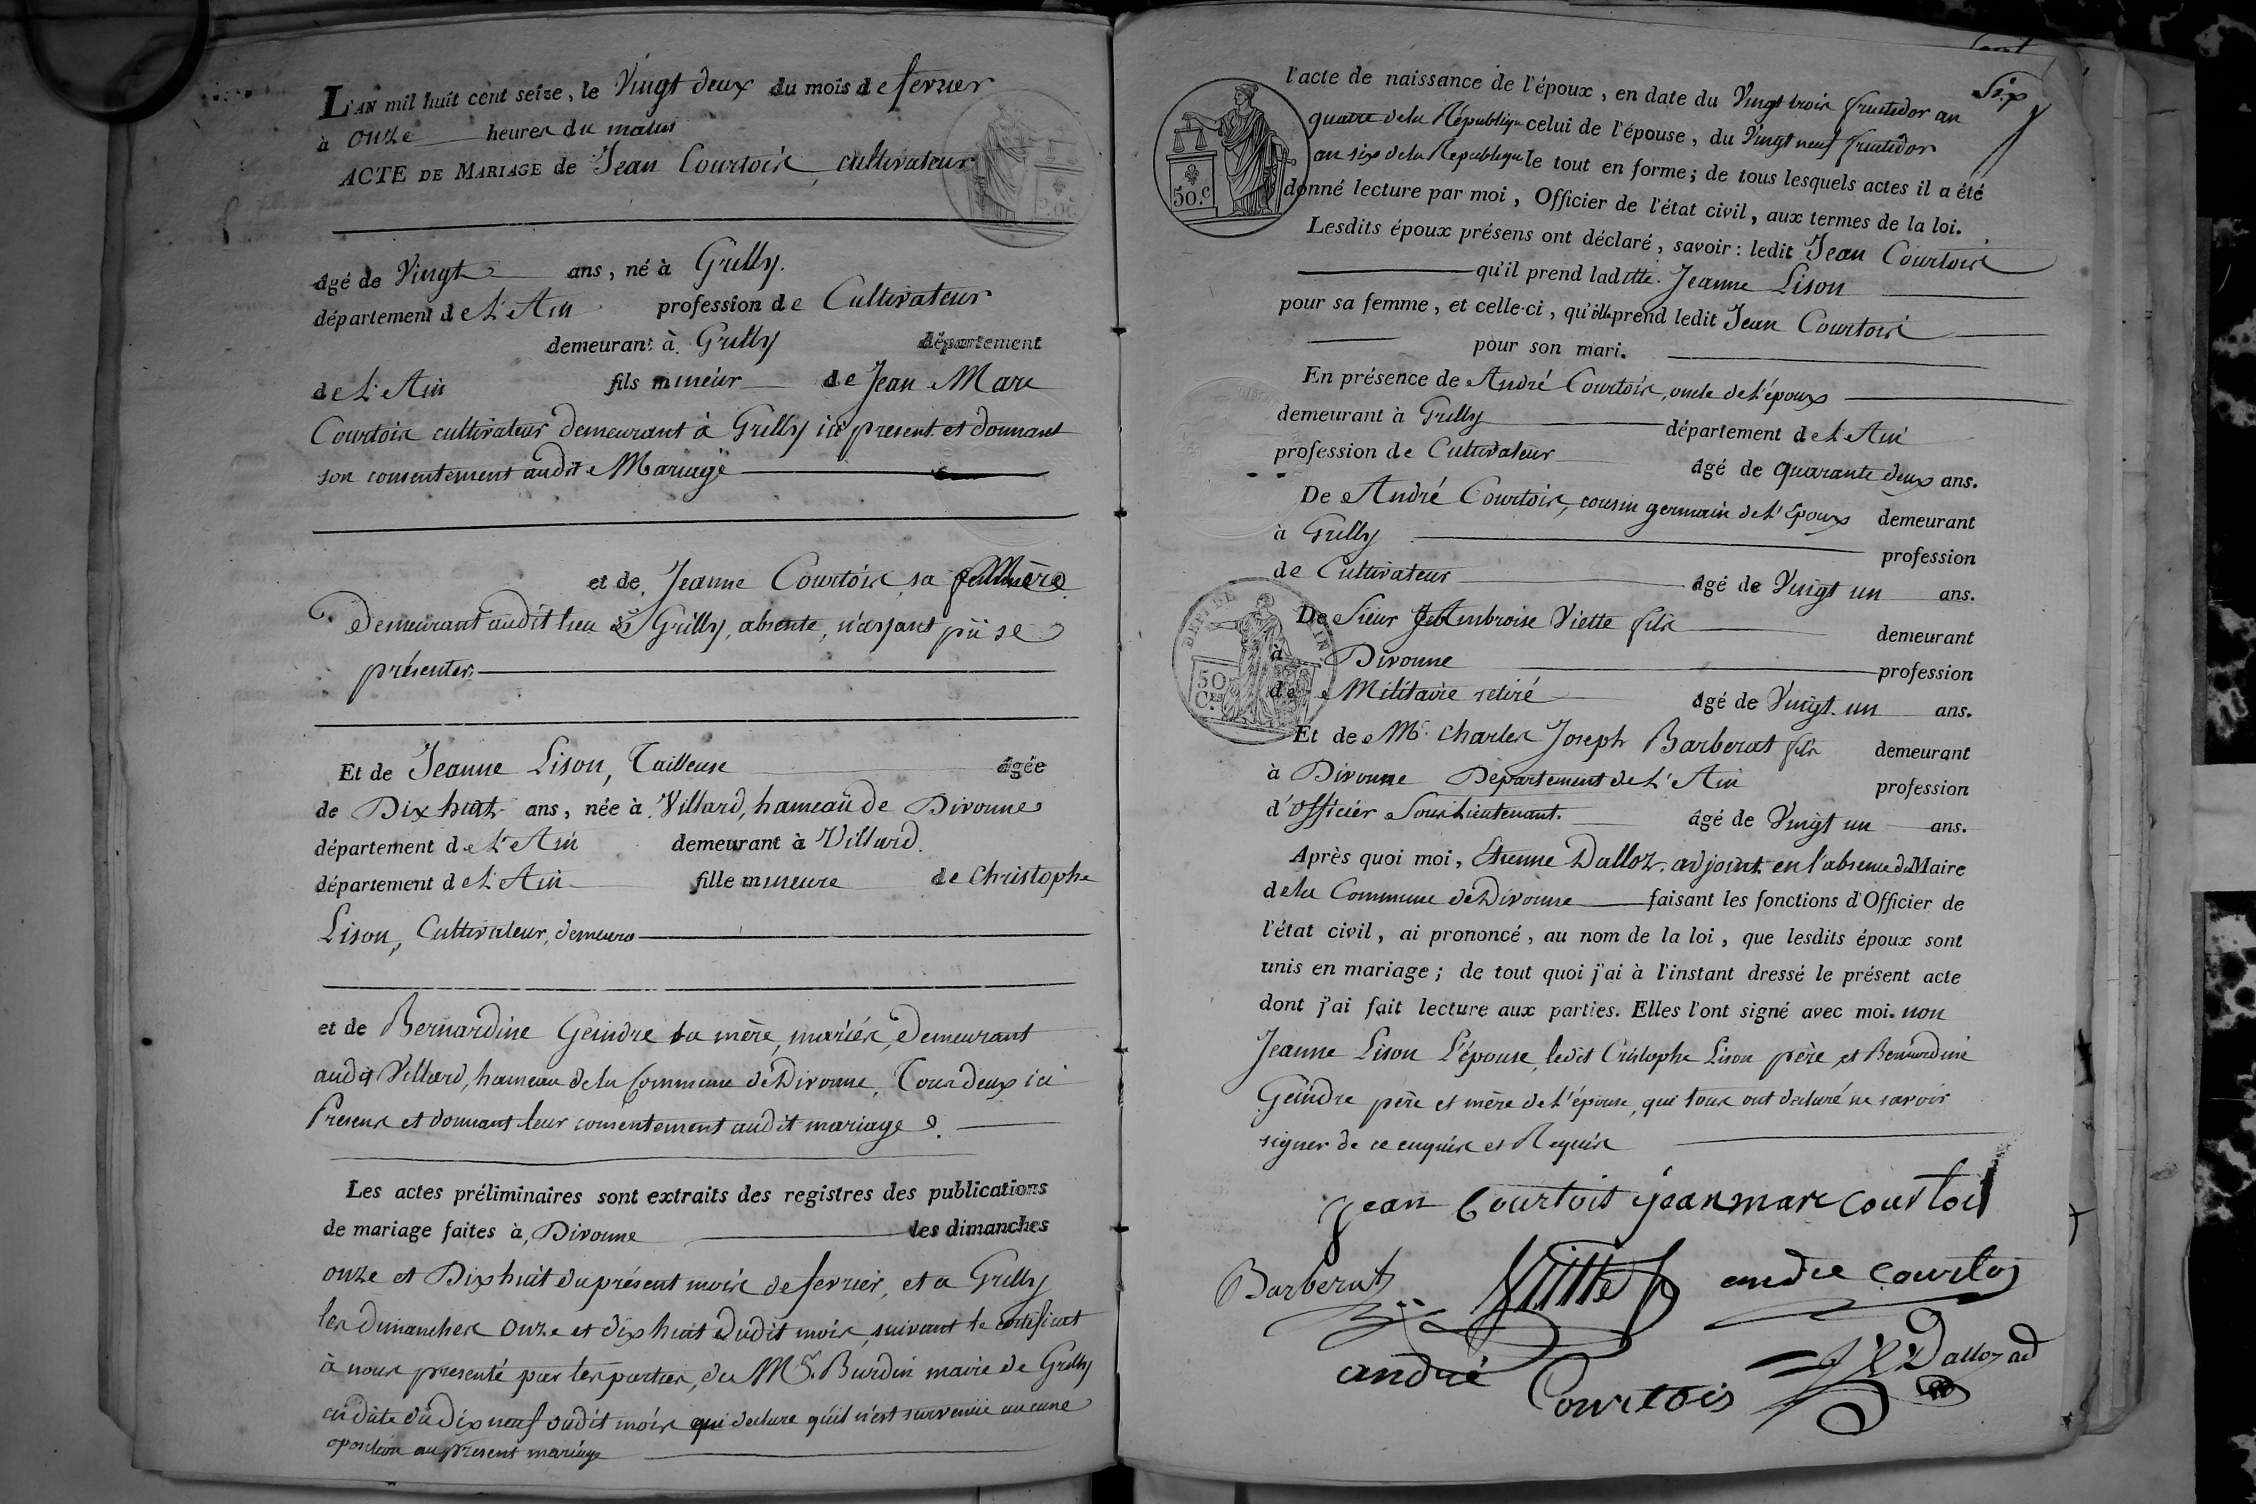 L'AN mil huit cent seize, le Vingt deux du mois de fevrier
à onze heures du matin
ACTE DE MARIAGE de Jean Courtois, cultivateur
âgé de Vingt ans, né à Grilly.
département de L'Ain profession de Cultivateur
demeurant à Grilly département
de L'Ain fils mineur de Jean Marc
Courtois cultivateur demeurant à Grilly ici present et donnant
son consentement audit Mariage
et de Jeanne Courtois, sa mère
Demeurant audit lieu de Grilly, absente, n'ayant pü se
présenter.
Et de Jeanne Lison, Tailleuse âgée
de Dix huit ans, née à Villard, hameau de Divonne
département de L'Ain demeurant à Villard.
département de L'Ain fille mineure de Christophe
Lison, Cultivateur, demeure
et de Bernardine Geindre sa mère, mariés, Demeurant
audit Villard, hameau de la Commune de Divonne, Tous deux ici
Presens et donnant leur consentement audit mariage.
Les actes préliminaires sont extraits des registres des publications
de mariage faites à Divonne les dimanches
onze et Dix huit du présent mois de fevrier, et a Grilly
les dimanches onze et dix huit dudit mois, suivant le certificat
à nous presenté par les parties, du Mr. Burdin maire de Grilly
en date du dix neuf dudit mois qui declare qu'il n'est survenüe aucune
oposition au present mariage
Six
l'acte de naissance de l'époux, en date du Vingt trois fructidor an
quatre de la République celui de l'épouse, du Vingt neuf fructidor
an six de la Republique le tout en forme; de tous lesquels actes il a été
donné lecture par moi, Officier de l'état civil, aux termes de la loi.
50.c
Lesdits époux présens ont déclaré, savoir: ledit Jean Courtois
qu'il prend laditte Jeanne Lison
pour sa femme, et celle-ci, qu'elle prend ledit Jean Courtois
pour son mari.
En présence de André Courtois, oncle de L'époux
demeurant à Grilly département de L'Ain
profession de Cultivateur âgé de quarante deux ans.
De André Courtois, cousin germain de L'Epoux demeurant
à Grilly profession
de Cultivateur âgé de Vingt un ans.
De Sieur Ambroise Viette fils demeurant
à Divonne profession
de Militaire retiré âgé de Vingt un ans.
50 Ces
Et de Mr. Charles Joseph Barberat fils demeurant
à Divonne Département de L'Ain profession
d'Officier Sous Lieutenant. âgé de Vingt un ans.
Après quoi moi, Etienne Dalloz adjoint en l'absence du Maire
de la Commune de Divonne faisant les fonctions d'Officier de
l'état civil, ai prononcé, au nom de la loi, que lesdits époux sont
unis en mariage; de tout quoi j'ai à l'instant dressé le présent acte
dont j'ai fait lecture aux parties. Elles l'ont signé avec moi. non
Jeanne Lison L'épouse, ledit Cristophe Lison père, et Bernardine
Geindre père et mère de L'épouse, qui tous ont declaré ne savoir
signer de ce enquis et Requis
jean Courtois jean marc courtois
Barberat Viette f andre courtois
andré Courtois Dalloz ad